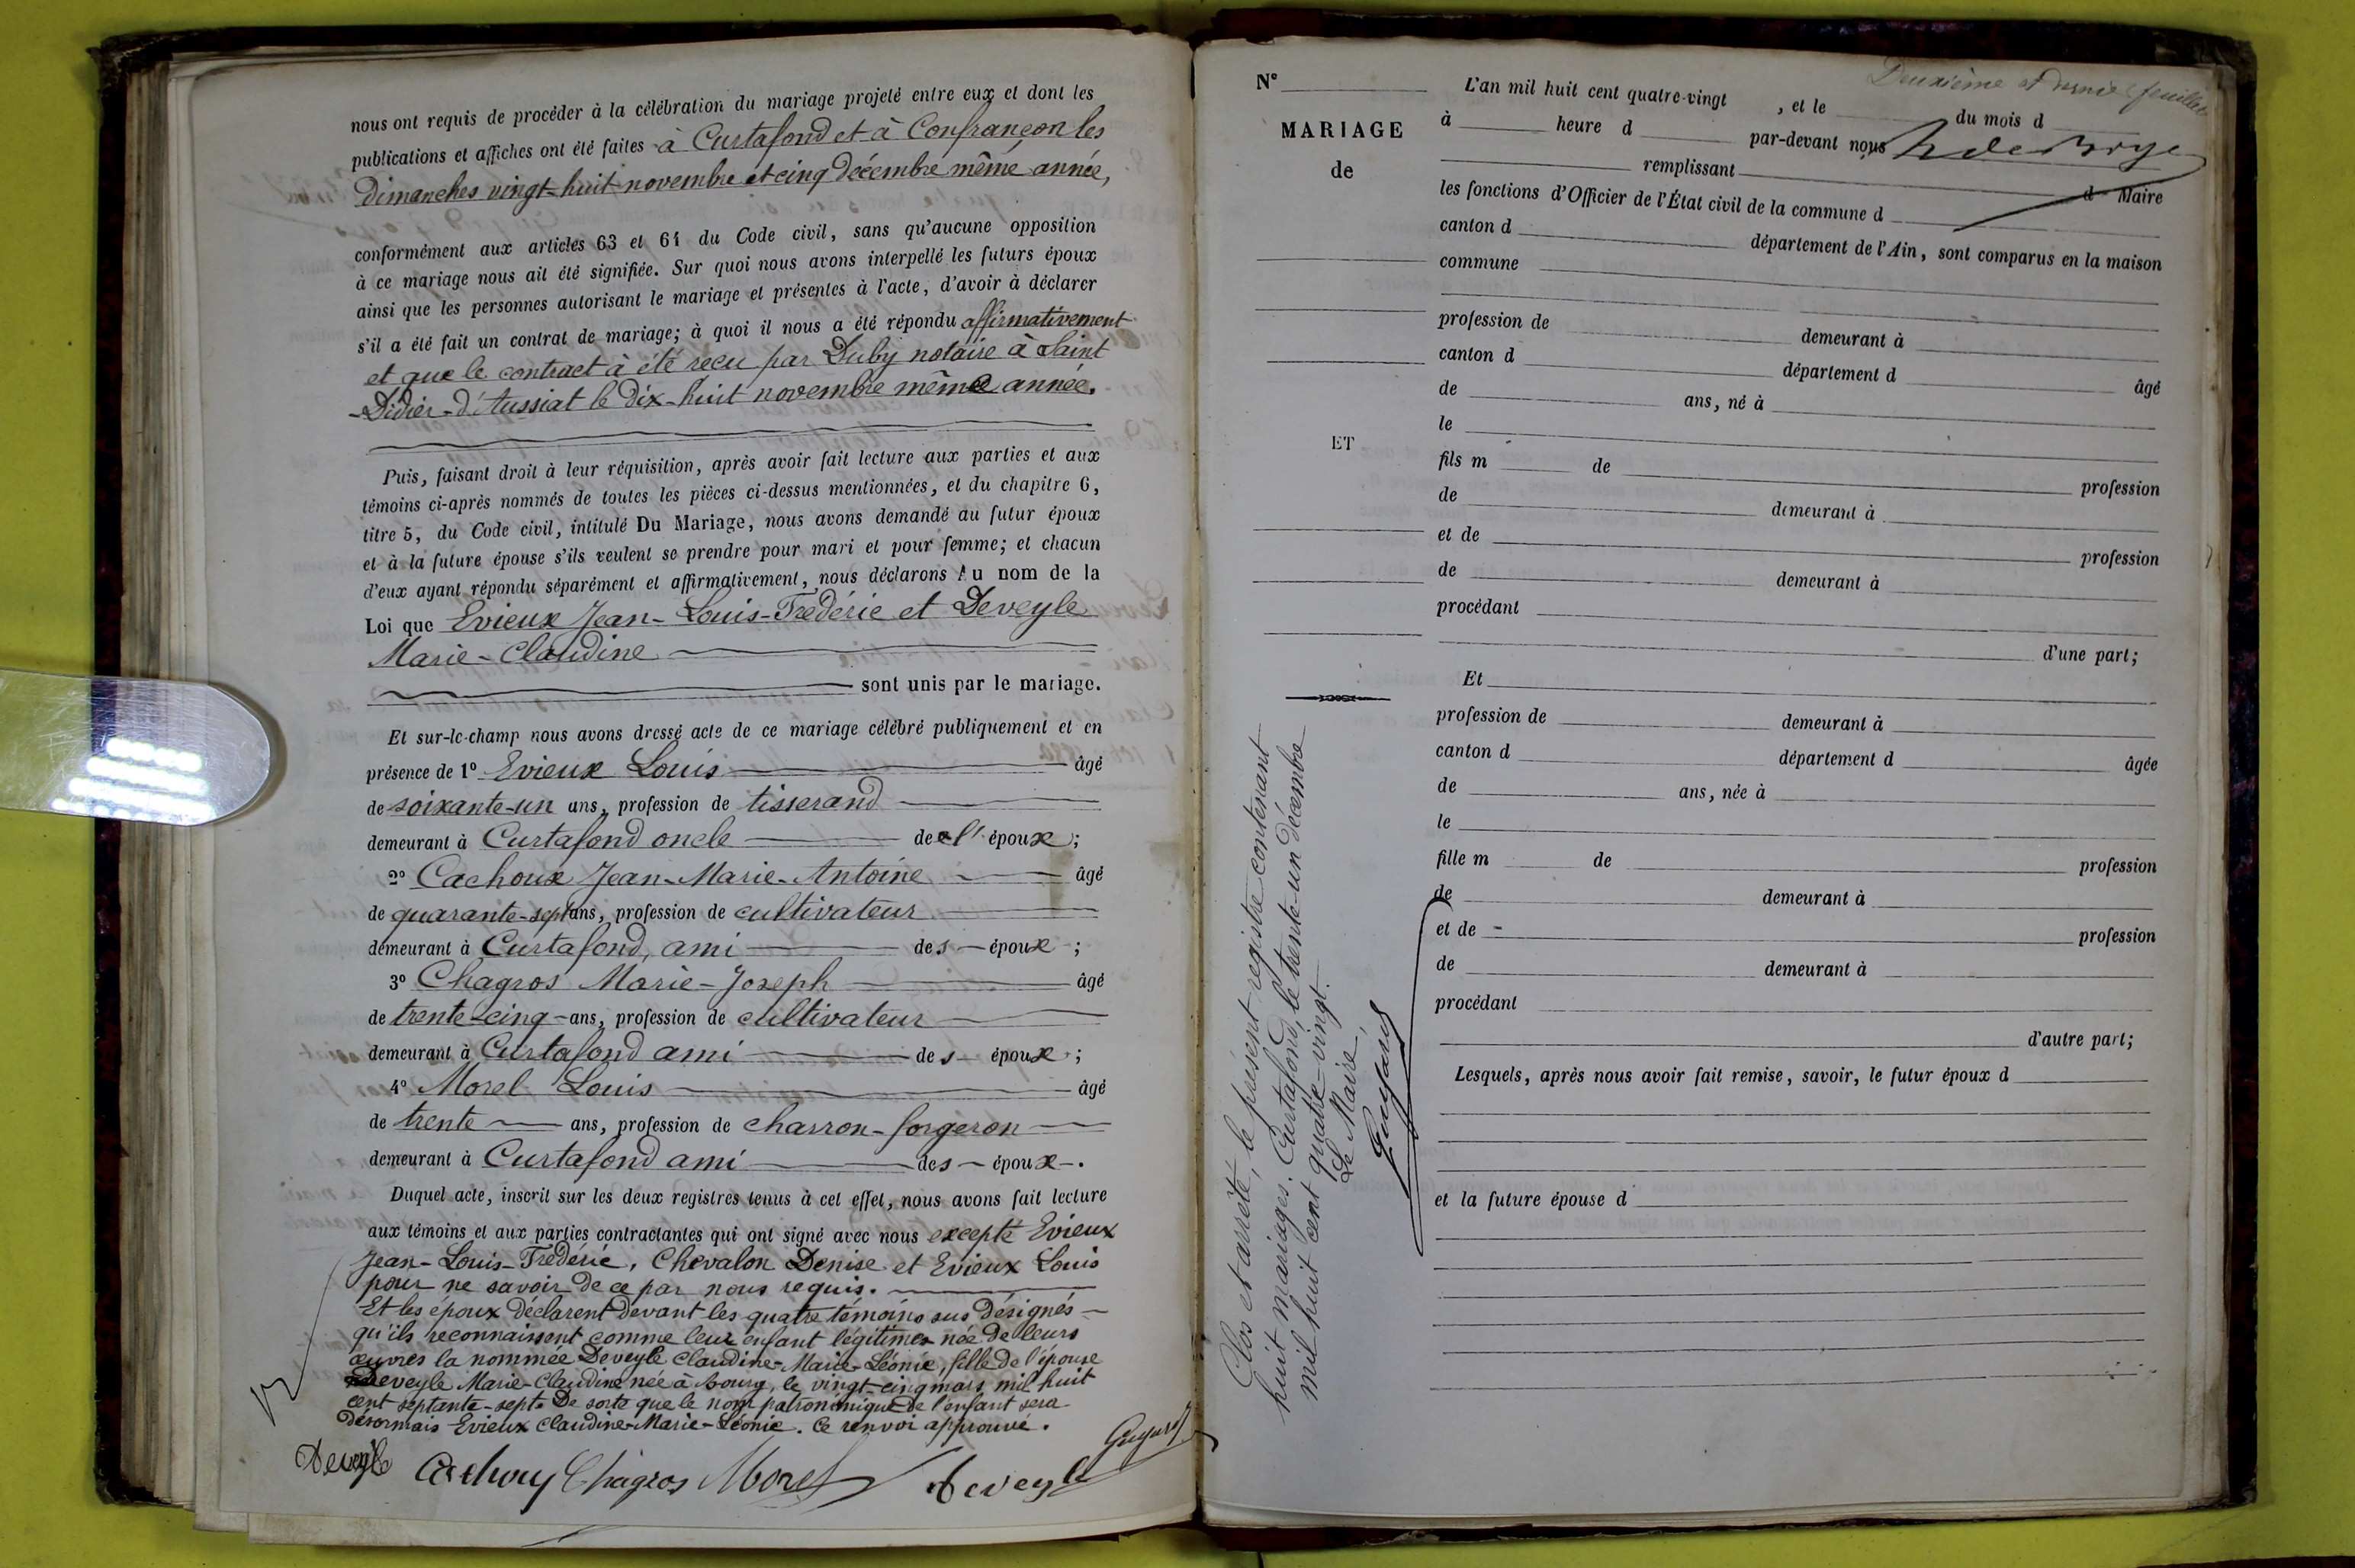 nous ont requis de procéder à la célébration du mariage projeté entre eux et dont les
publications et affiches ont été faites à Curtafond et à Confrançon les
dimanches vingt-huit novembre et cinq décembre même année,
conformément aux articles 63 et 64 du Code civil, sans qu'aucune opposition
à ce mariage nous ait été signifiée. Sur quoi nous avons interpellé les futurs époux
ainsi que les personnes autorisant le mariage et présentes à l'acte, d'avoir à déclarer
s'il a été fait un contrat de mariage; à quoi il nous a été répondu affirmativement
et que le contract à été reçu par Duby notaire à Saint
-Didier-d'Aussiat le dix-huit novembre même année.
Puis, faisant droit à leur réquisition, après avoir fait lecture aux parties et aux
témoins ci-après nommés de toutes les pièces ci-dessus mentionnées, et du chapitre 6,
titre 5, du Code civil, intitulé Du Mariage, nous avons demandé au futur époux
et à la future épouse s'ils veulent se prendre pour mari et pour femme; et chacun
d'eux ayant répondu séparément et affirmativement, nous déclarons Au nom de la
Loi que Evieux Jean-Louis-Frédéric et Deveyle
Marie-Claudine
sont unis par le mariage.
Et sur-le-champ nous avons dressé acte de ce mariage célébré publiquement et en
présence de 1° Evieux Louis âgé
de soixante-un ans, profession de tisserand
demeurant à Curtafond oncle de l'époux;
2° Cachoux Jean-Marie-Antoine âgé
de quarante-sept ans, profession de cultivateur
demeurant à Curtafond, ami des époux;
3° Chagros Marie-Joseph âgé
de trente-cinq ans, profession de cultivateur
demeurant à Curtafond ami des époux;
4° Morel Louis âgé
de trente ans, profession de charron-forgeron
demeurant à Curtafond ami des époux.
Duquel acte, inscrit sur les deux registres tenus à cet effet, nous avons fait lecture
aux témoins et aux parties contractantes qui ont signé avec nous excepté Evieux
Jean-Louis-Frédéric, Chevalon Denise et Evieux Louis
pour ne savoir de ce par nous requis.
Et les époux déclarent devant les quatre témoins sus désignés
qu'ils reconnaissent comme leur enfant légitimes née de leurs
œuvres la nommée Deveyle Claudine-Marie-Léonie, fille de l'épouse
Deveyle Marie-Claudine née à Bourg, le vingt-cinq mars mil huit
cent septante-sept. De sorte que le nom patronimique de l'enfant sera
désormais Evieux Claudine-Marie-Léonie. Ce renvoi approuvé.
Deveyle Cachoux Chagros Morel Deveyle
N° L'an mil huit cent quatre-vingt , et le du mois d
Deuxième et dernier feuillet
MARIAGE
de
à heure d par-devant nous
remplissant
d Maire
les fonctions d'Officier de l'État civil de la commune d
canton d département de l'Ain, sont comparus en la maison
commune
profession de demeurant à
canton d département d âgé
de ans, né à
le
ET
fils m de profession
de demeurant à
et de profession
de demeurant à
procédant
d'une part;
Et
profession de demeurant à
canton d département d âgée
de ans, née à
le
fille m de profession
de demeurant à
et de profession
de demeurant à
procédant
d'autre part;
Lesquels, après nous avoir fait remise, savoir, le futur époux d
et la future épouse d
Clos et arrêté, le présent registre contenant
huit mariages. Curtafond, le trente-un décembre
mil huit cent quatre-vingt.
Le Maire,